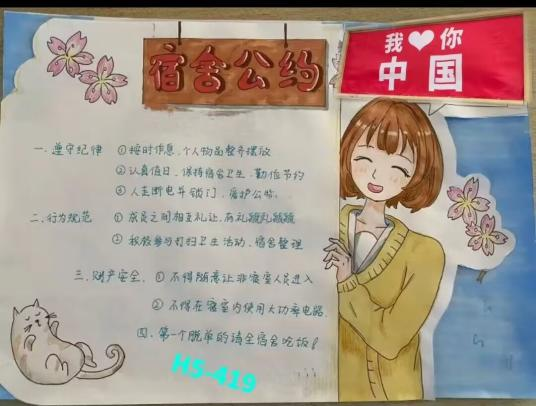 宿舍公约
我❤你
中国
一.遵守纪律 ①按时作息、个人物品整齐摆放
②认真值日、保持宿舍卫生、勤俭节约
③人走断电并锁门,爱护公物.
二.行为规范 ①室友之间相互礼让、有礼貌
②积极参与打扫卫生活动、宿舍整理
三.财产安全. ①不得随意让非寝室人员进入
②不得在寝室内使用大功率电器.
四.第一个脱单的请全宿舍吃饭!
H5-419